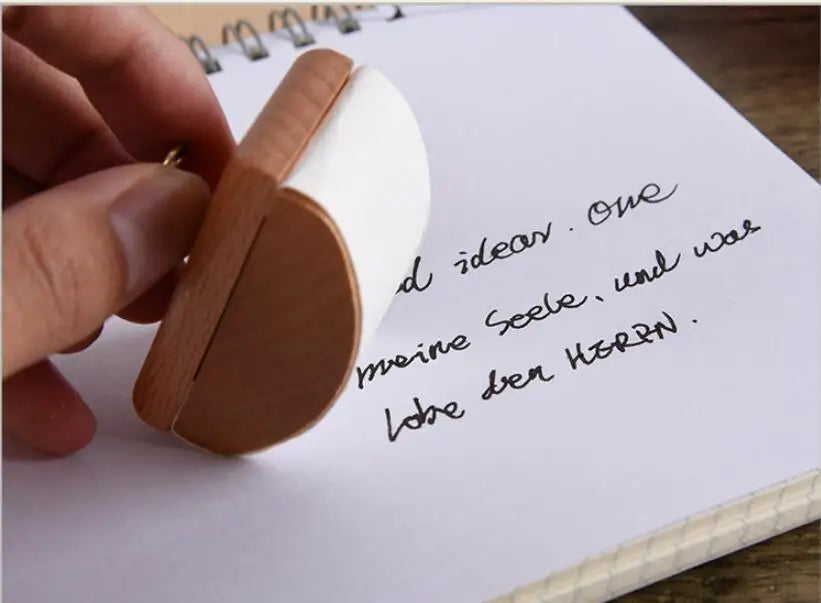 d idear. one
meine Seele, und was
lobe den HERRN.